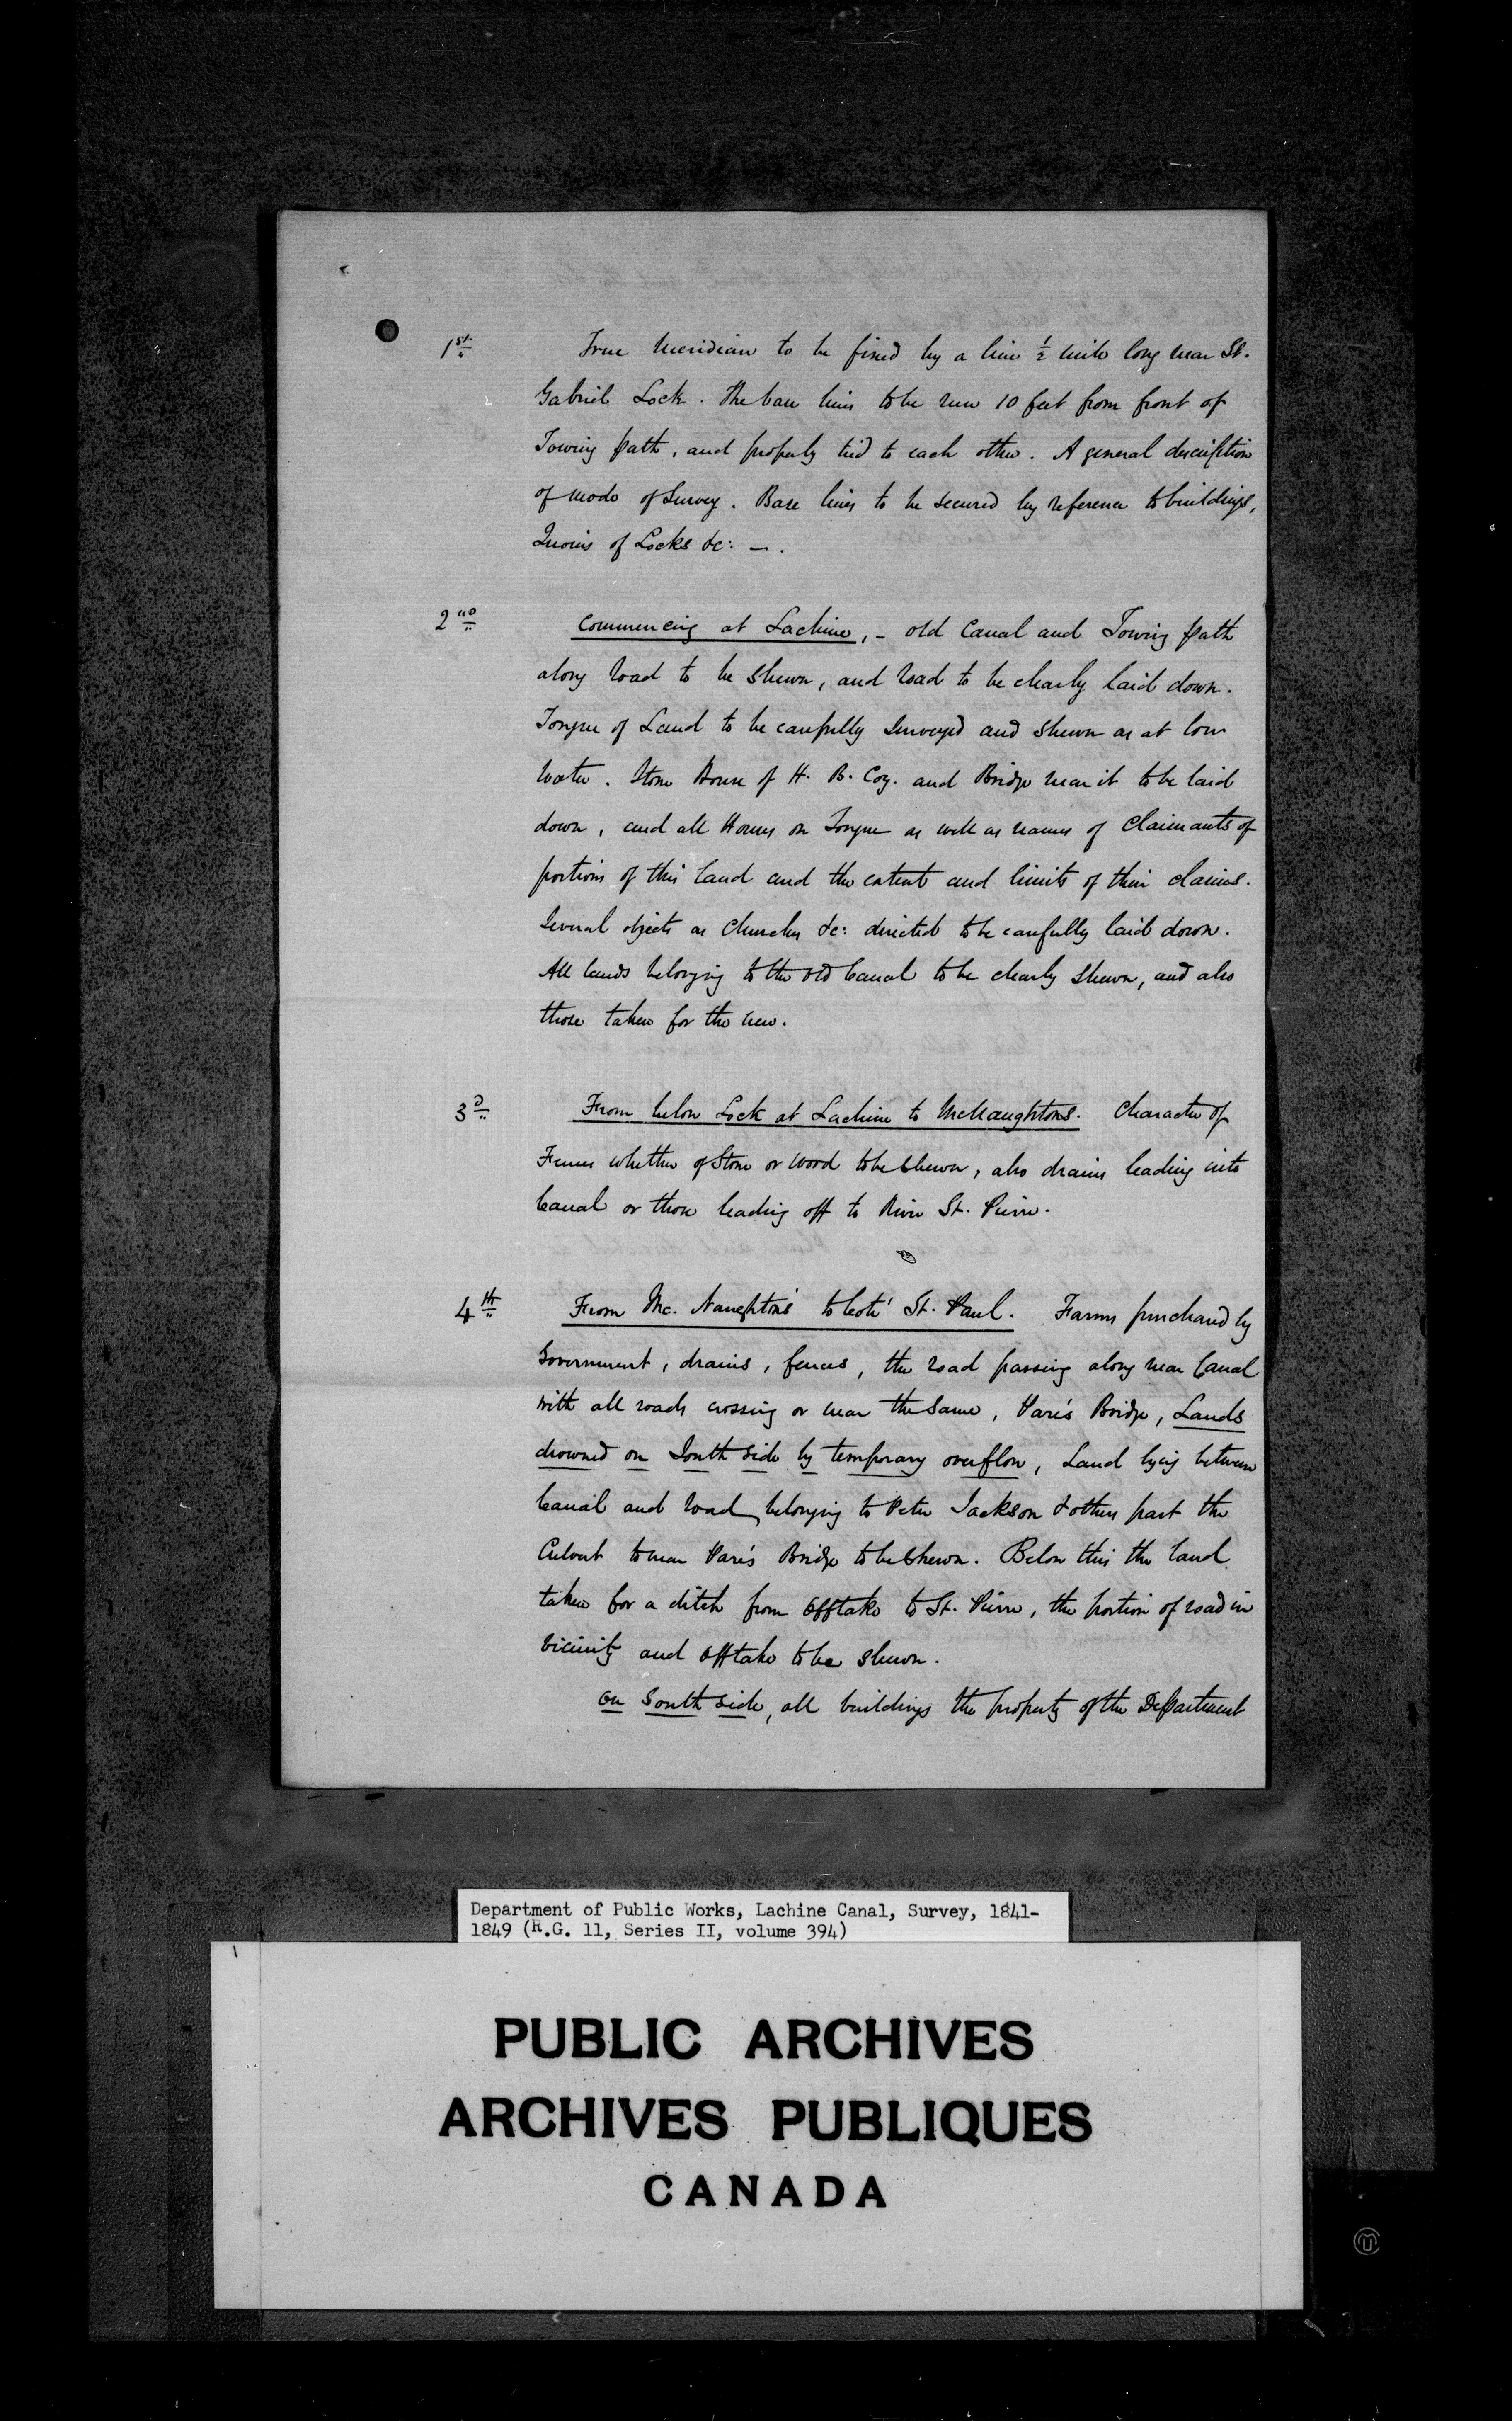 1st True Meridian to be fixed by a line ½ mile long near St.
Gabriel Lock. The base lines to be run 10 feet from front of
Towing path, and properly tied to each other. A general description
of mode of Survey. Base lines to be secured by reference to buildings,
Quoins of Locks &c: —.
2nd Commencing at Lachine, – old Canal and Towing path
along road to be shewn, and road to be clearly laid down.
Tongue of Land to be carefully surveyed and shewn as at low
water. Stone House of H. B. Coy. and Bridge near it to be laid
down, and all Houses on Tongue as well as names of Claimants of
portions of this land and the extent and limits of their claims.
Several objects as Churches &c: directed to be carefully laid down.
All lands belonging to the old Canal to be clearly shewn, and also
those taken for the new.
3d From below Lock at Lachine to McNaughtons. Character of
Fences whether of Stone or Wood to be Shewn, also drains leading into
Canal or those leading off to River St. Pierre.
4th From Mc. Naughton's to Coté St. Paul. Farms purchased by
Government, drains, fences, the road passing along near Canal
with all roads crossing or near the same, Paré's Bridge, Lands
drowned on South side by temporary overflow, Land lying between
Canal and road belonging to Peter Jackson & others past the
Culvert to near Paré's Bridge to be Shewn. Below this the land
taken for a ditch from Offtake to St. Pierre, the portion of road in
vicinity and Offtake to be shewn.
On South side, all buildings the property of the Department
Department of Public Works, Lachine Canal, Survey, 1841-
1849 (R.G. 11, Series II, volume 394)
PUBLIC ARCHIVES
ARCHIVES PUBLIQUES
CANADA